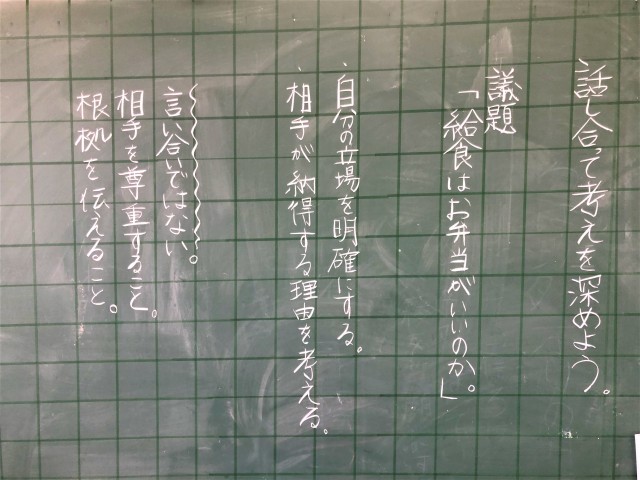 話し合って考えを深めよう。
議題
「給食はお弁当がいいのか。」
・自分の立場を明確にする。
・相手が納得する理由を考える。
言い合いではない。
相手を尊重すること。
根拠を伝えること。